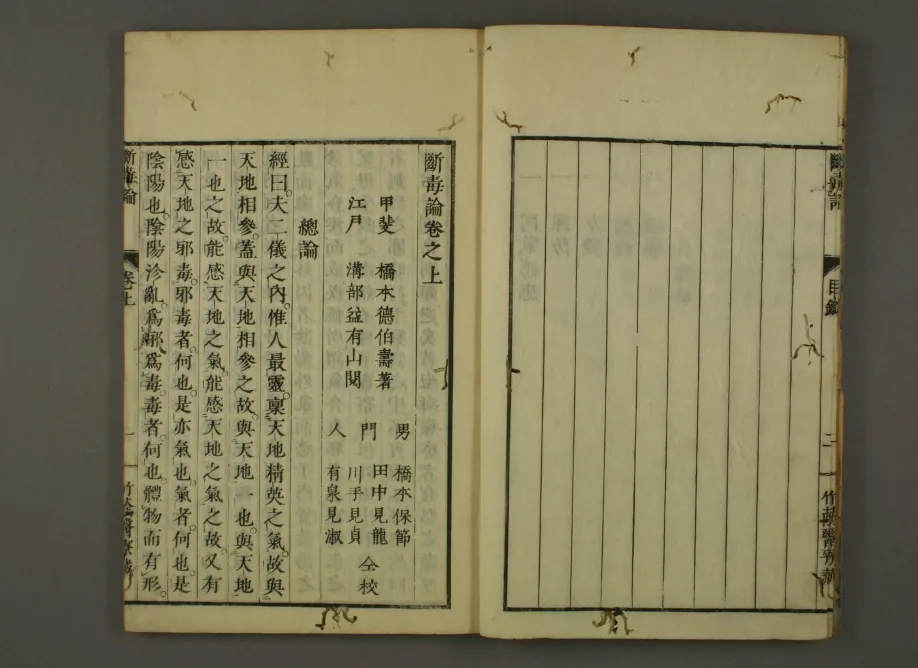 斷毒論
目錄
二
斷毒論卷之上
甲斐 橋本德伯壽著
江戶 溝部益有山閱
男 橋本保節
門 田中見龍
川手見貞 仝校
人 有泉見淑
總論
經曰。夫二儀之內。惟人最靈。稟天地精英之氣。故與
天地相參。蓋與天地相參之故。與天地一也。與天地
一也之故。能感天地之氣。能感天地之氣之故。又有
感天地之邪毒。邪毒者。何也。是亦氣也。氣者。何也。是
陰陽也。陰陽沴亂。爲邪爲毒。毒者。何也。體物而有形。
斷毒論
卷上
一